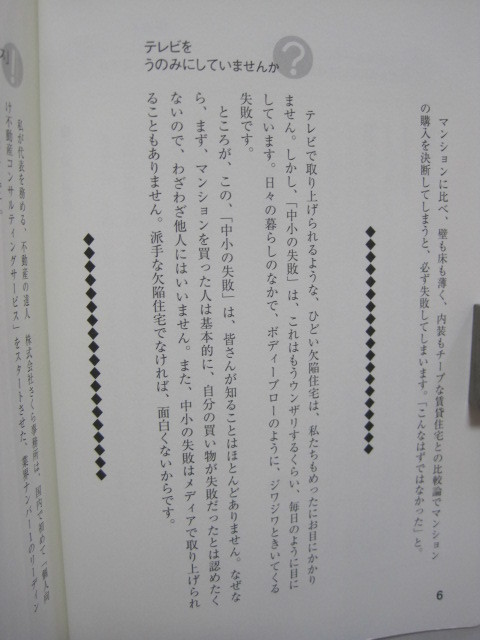 マンションに比べ、壁も床も薄く、内装もチープな賃貸住宅との比較論でマンション
の購入を決断してしまうと、必ず失敗してしまいます。「こんなはずではなかった」と。
◆◆◆◆◆◆◆◆◆◆◆◆◆◆◆◆◆◆
テレビを
うのみにしていませんか
?
テレビで取り上げられるような、ひどい欠陥住宅は、私たちもめったにお目にかかり
ません。しかし、「中小の失敗」は、これはもうウンザリするくらい、毎日のように目に
しています。日々の暮らしのなかで、ボディーブローのように、ジワジワときいてくる
失敗です。
ところが、この、「中小の失敗」は、皆さんが知ることはほとんどありません。なぜな
ら、まず、マンションを買った人は基本的に、自分の買い物が失敗だったとは認めたく
ないので、わざわざ他人にはいいません。また、中小の失敗はメディアで取り上げられ
ることもありません。派手な欠陥住宅でなければ、面白くないからです。
◆◆◆◆◆◆◆◆◆◆◆◆◆◆◆◆◆◆
6
私が代表を務める、不動産の達人 株式会社さくら事務所は、国内で初めて「個人向
け不動産コンサルティングサービス」をスタートさせた、業界ナンバー1のリーディン